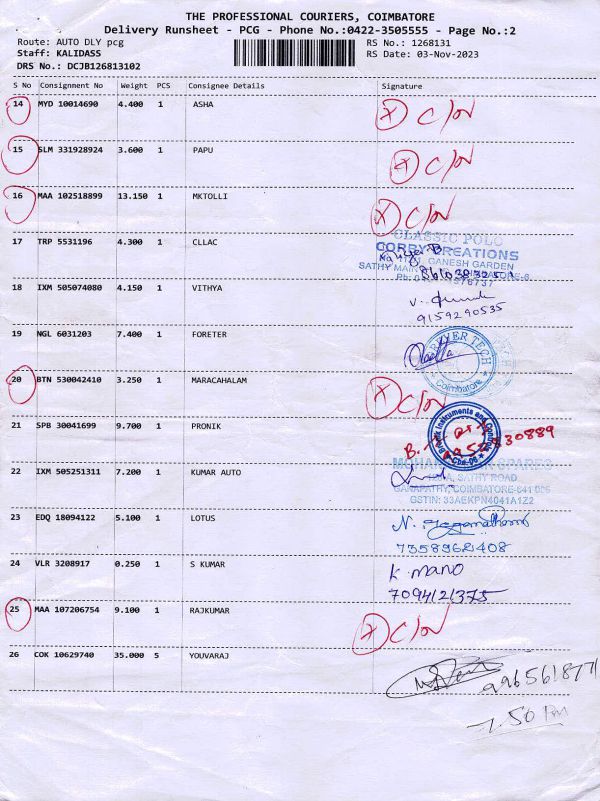 THE PROFESSIONAL COURIERS, COIMBATORE
Delivery Runsheet - PCG - Phone No.:0422-3505555 - Page No.:2
Route: AUTO DLY pcg RS No.: 1268131
Staff: KALIDASS RS Date: 03-Nov-2023
DRS No.: DCJB126813102
S No Consignment No Weight PCS Consignee Details Signature
14 MYD 10014690 4.400 1 ASHA X C/N
15 SLM 331928924 3.600 1 PAPU X C/N
16 MAA 102518899 13.150 1 MKTOLLI X C/N
CLASSIC POLO
17 TRP 5531196 4.300 1 CLLAC
GANESH GARDEN
SATHY MAIN
18 IXM 505074080 4.150 1 VITHYA
9159290535
19 NGL 6031203 7.400 1 FORETER
TECH
Coimbatore
20 BTN 530042410 3.250 1 MARACAHALAM X C/N
21 SPB 30041699 9.700 1 PRONIK
Instruments and
22 IXM 505251311 7.200 1 KUMAR AUTO
SATHY ROAD
GANAPATHY, COIMBATORE-641 006
GSTIN: 33AEKPN4041A1Z2
23 EDQ 18094122 5.100 1 LOTUS N. Jegannathan
7358962408
24 VLR 3208917 0.250 1 S KUMAR K MANO
7094121375
25 MAA 107206754 9.100 1 RAJKUMAR X C/N
26 COK 10629740 35.000 5 YOUVARAJ
7.50 Pm